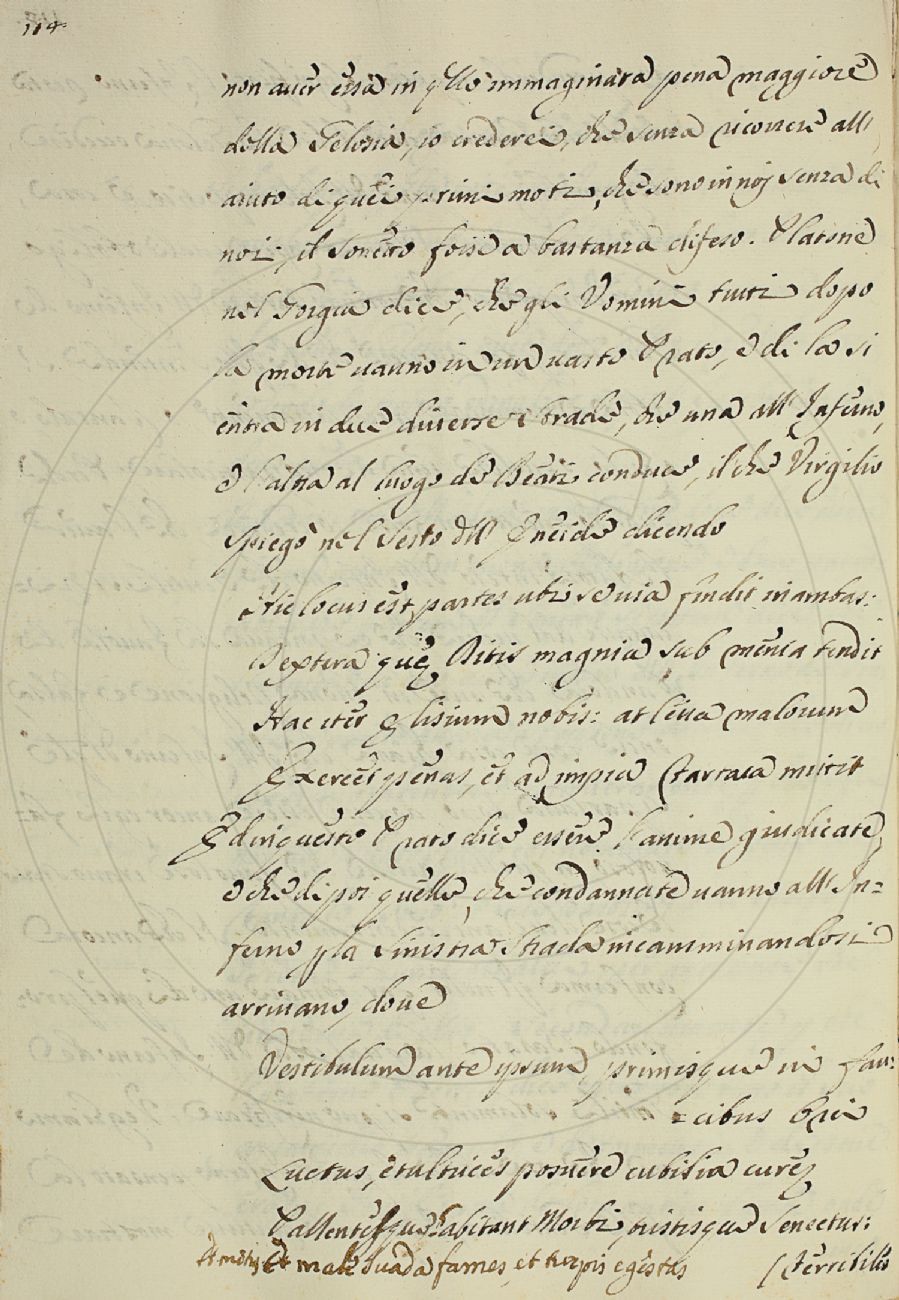 114.
non auer essa in qllo immaginata pena maggiore
della Gelosia, io crederei, che senza ricorrere all'
aiuto di quei primi moti, che sono in noj senza di
noi, il Sonetto fosse a bastanza difeso. Platone
nel Gorgia dice, che gli Uomini tutti dopo
la morte vanno in un uasto Prato, e di la si
entra in due diuerse strade, che una all' Inferno,
e l'altra al luogo de Beati conduce, il che Virgilio
spiegò nel Sesto dell' Eneide dicendo
Hic locus est, partes ubi se uia findit in ambas:
Dextera quę Ditis magni sub męnia tendit
Hac iter Elisium nobis: at leua malorum
Exercet pęnas, et ad impia Tartara mittit
Ed in questo Prato dice essere l'anime giudicate,
e che di poi quelle, che condannate uanno all' In=
ferno p la sinistra strada incamminandosi
arriuano, doue
Vestibulum ante ipsum, primisque in fau=
=cibus Orci
Luctus, et ultrices posuere cubilia curę
Pallentesque habitant Morbi tristisque Senectus:
Et metus Et male suada fames, et turpis egestas
(Terribiles